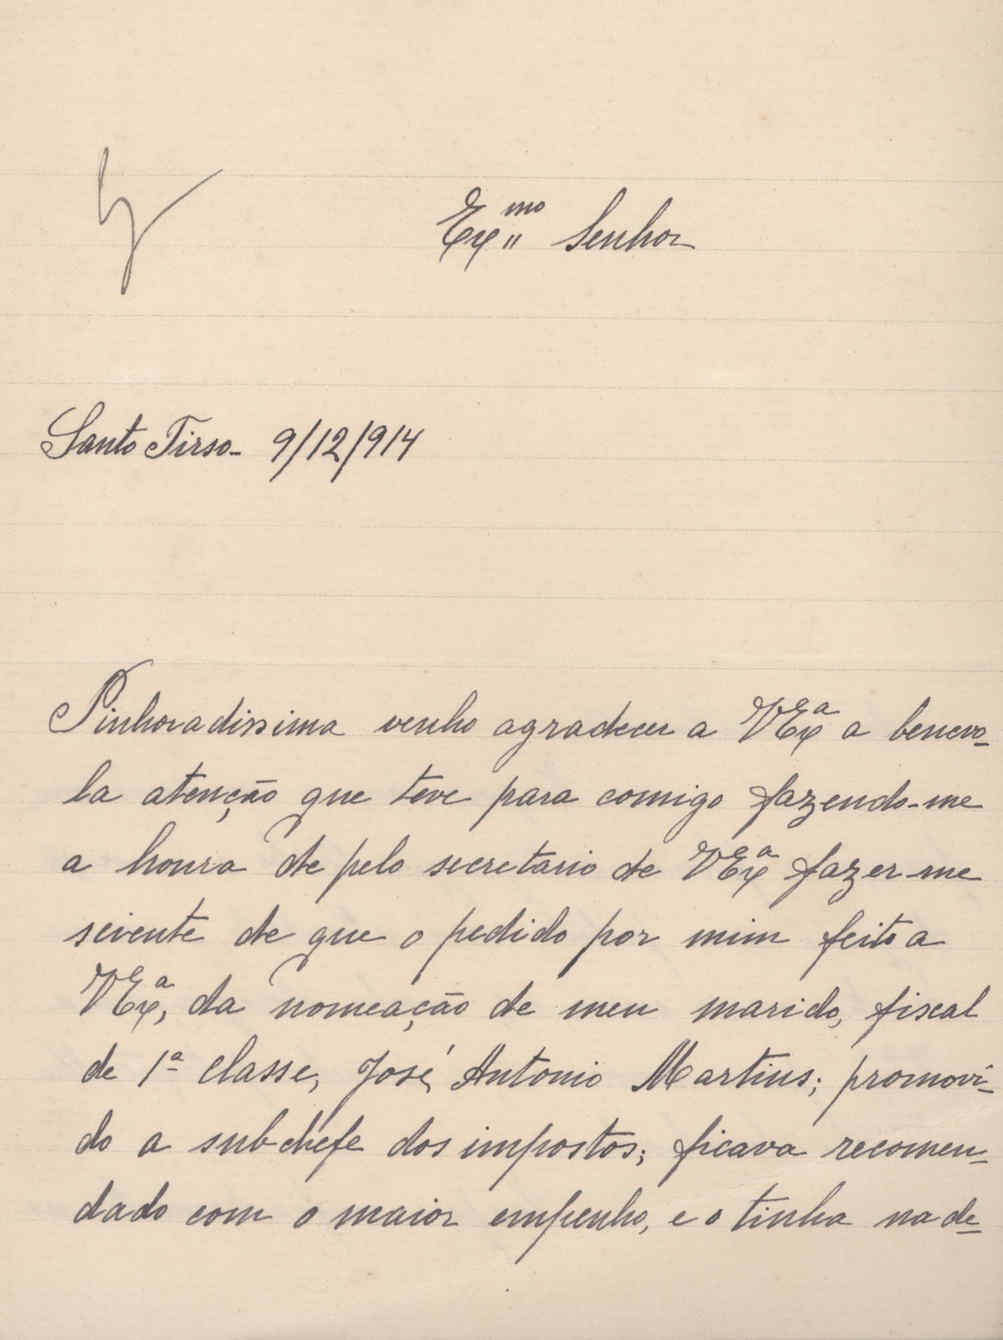 Ex.mo Senhor
Santo Tirso - 9/12/914
Pinhoradissima venho agradecer a VExª a benevo-
la atenção que teve para comigo fazendo-me
a honra de pelo secretario de VExª fazer-me
sciente de que o pedido por mim feito a
VExª, da nomeação de meu marido, fiscal
de 1ª classe, José Antonio Martins; promovi-
do a sub-chefe dos impostos; ficava recomen-
dado com o maior empenho, e o tinha na de-